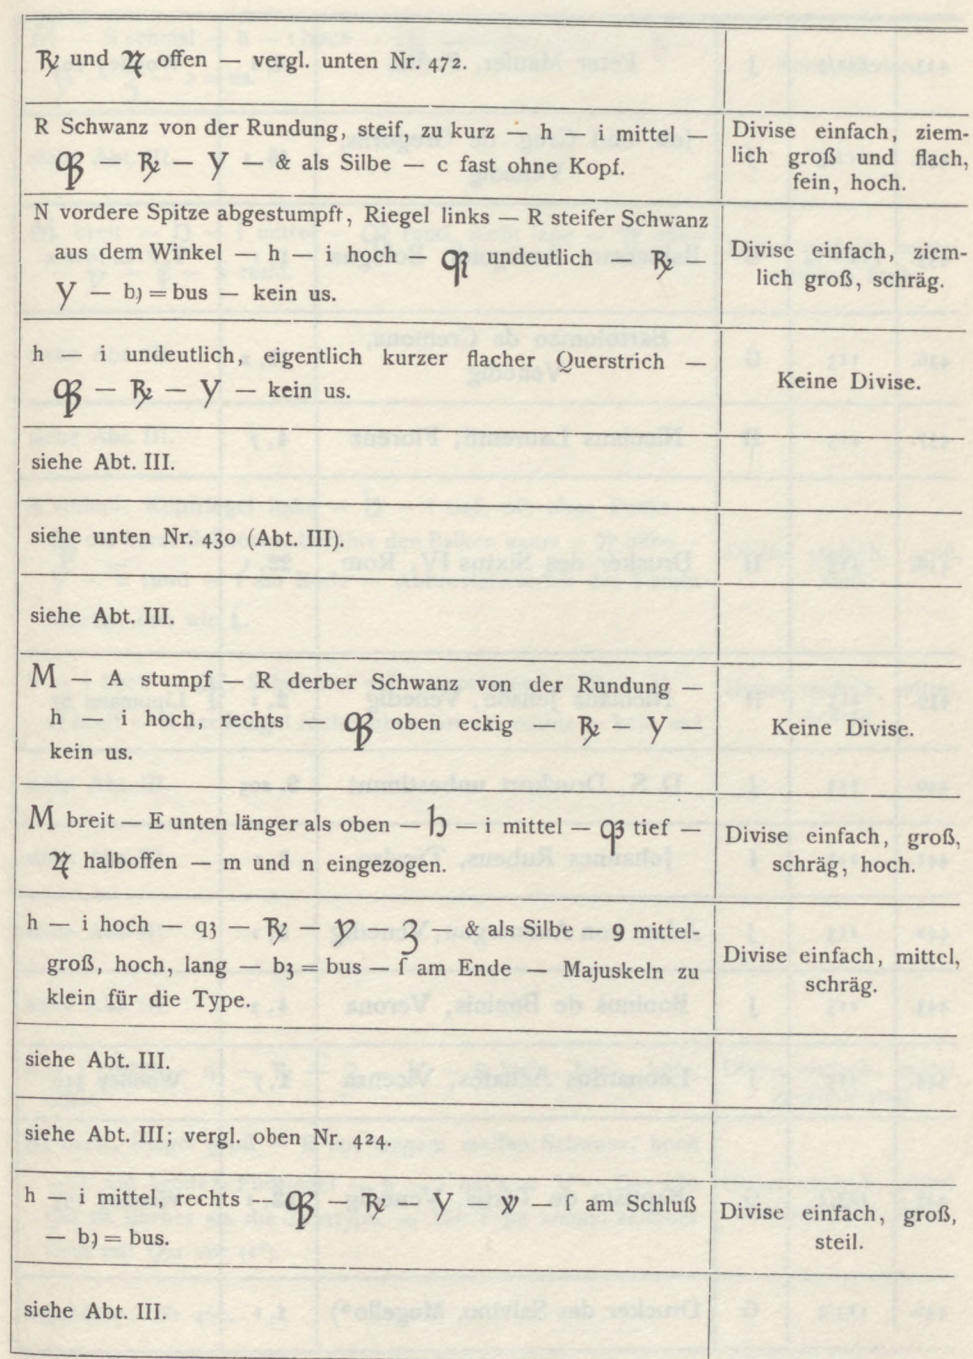 ℞ und ꝝ offen — vergl. unten Nr. 472.
R Schwanz von der Rundung, steif, zu kurz — h — i mittel —
— ℞ — y — & als Silbe — c fast ohne Kopf.
Divise einfach, ziem-
lich groß und flach,
fein, hoch.
N vordere Spitze abgestumpft, Riegel links — R steifer Schwanz
aus dem Winkel — h — i hoch — undeutlich — ℞ —
y — bꝫ = bus — kein us.
Divise einfach, ziem-
lich groß, schräg.
h — i undeutlich, eigentlich kurzer flacher Querstrich —
— ℞ — y — kein us.
Keine Divise.
siehe Abt. III.
siehe unten Nr. 430 (Abt. III).
siehe Abt. III.
M — A stumpf — R derber Schwanz von der Rundung —
h — i hoch, rechts — oben eckig — ℞ — y —
kein us.
Keine Divise.
M breit — E unten länger als oben — h — i mittel — qꝫ tief —
ꝝ halboffen — m und n eingezogen.
Divise einfach, groß,
schräg, hoch.
h — i hoch — qꝫ — ℞ — y — ꝫ — & als Silbe — 9 mittel-
groß, hoch, lang — bꝫ = bus — ſ am Ende — Majuskeln zu
klein für die Type.
Divise einfach, mittel,
schräg.
siehe Abt. III.
siehe Abt. III; vergl. oben Nr. 424.
h — i mittel, rechts -- — ℞ — y — — ſ am Schluß
— bꝫ = bus.
Divise einfach, groß,
steil.
siehe Abt. III.